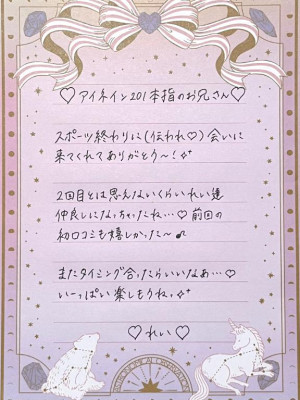 ♡アイネイン201本指のお兄さん♡
スポーツ終わりに(伝われ♡)会いに
来てくれてありがとう〜!✧
2回目とは思えないくらいれい達
仲良しになっちゃったね…♡前回の
初口コミも嬉しかった〜♪
またタイミング合ったらいいなあ…♡
いーっぱい楽しもうねっ✧
♡れい♡